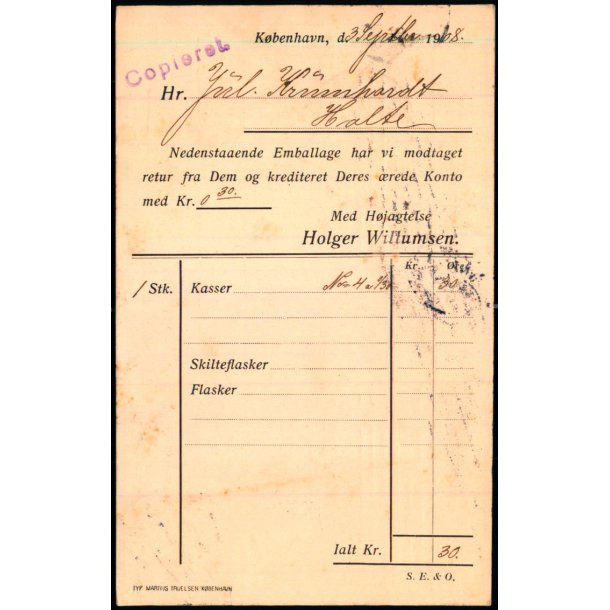 København, d. 3 Septbr 1908.
Copieret
Hr. Jul. Krumhardt
Holte
Nedenstaaende Emballage har vi modtaget
retur fra Dem og krediteret Deres ærede Konto
med Kr. 0 30.
Med Højagtelse
Holger Willumsen.
Kr. Øre
1 Stk. Kasser No 4 a 30
Skilteflasker
Flasker
Ialt Kr. 30.
S. E. & O.
TYP. MARTIUS TRUELSEN KØBENHAVN